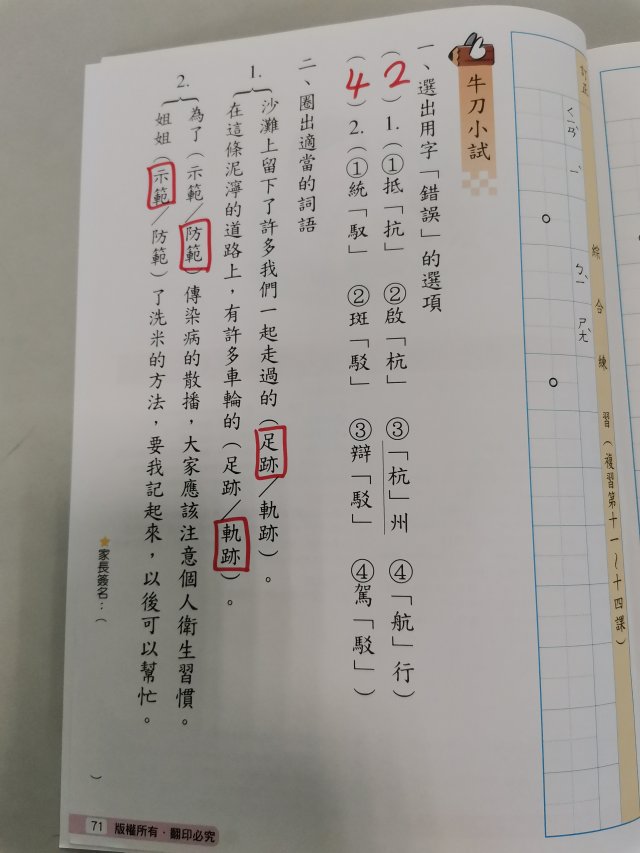 訂正
ㄑㄧㄢˋ
ㄧ
ㄅㄧˋ
ㄕㄤˋ
綜合練習(複習第十一~十四課)
牛刀小試
一、選出用字「錯誤」的選項
(2)1.(①抵「抗」 ②啟「杭」 ③「杭」州 ④「航」行)
(4)2.(①統「馭」 ②斑「駁」 ③辯「駁」 ④駕「駁」)
二、圈出適當的詞語
1.
沙灘上留下了許多我們一起走過的(足跡/軌跡)。
在這條泥濘的道路上,有許多車輪的(足跡/軌跡)。
2.
為了(示範/防範)傳染病的散播,大家應該注意個人衛生習慣。
姐姐(示範/防範)了洗米的方法,要我記起來,以後可以幫忙。
★家長簽名:( )
71 版權所有・翻印必究